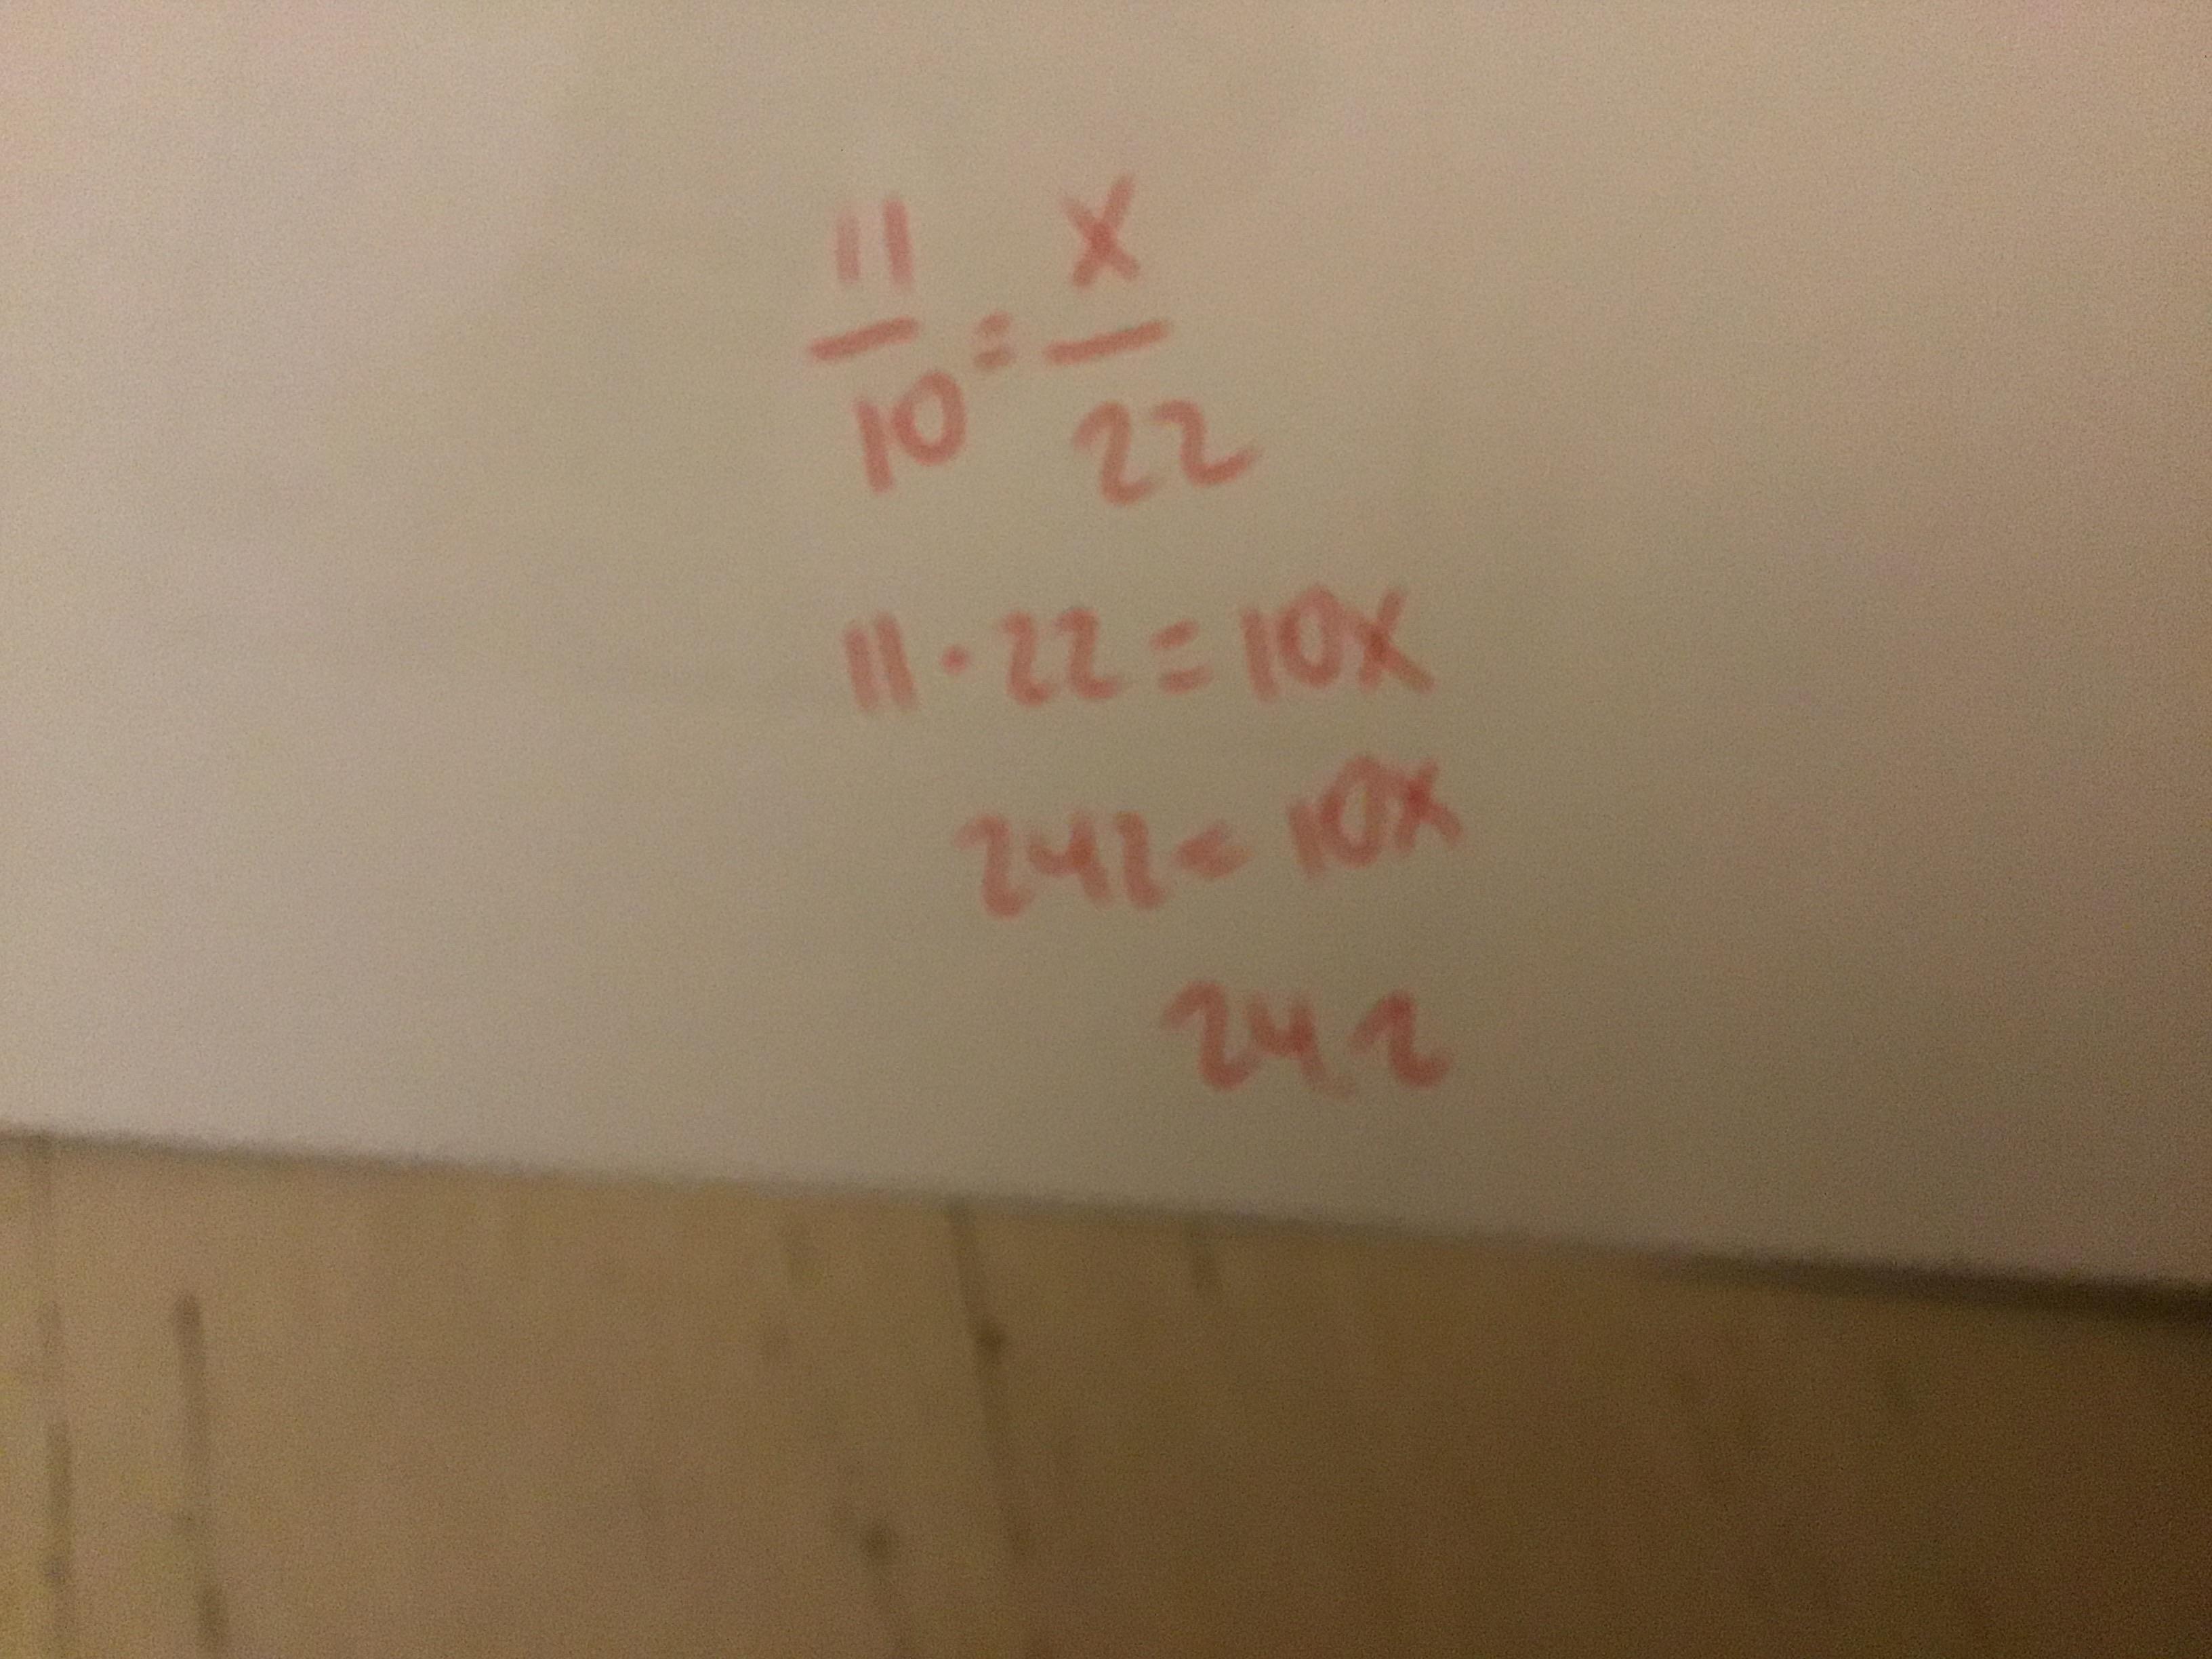 11/10 = x/22
11 · 22 = 10x
242 = 10x
24.2